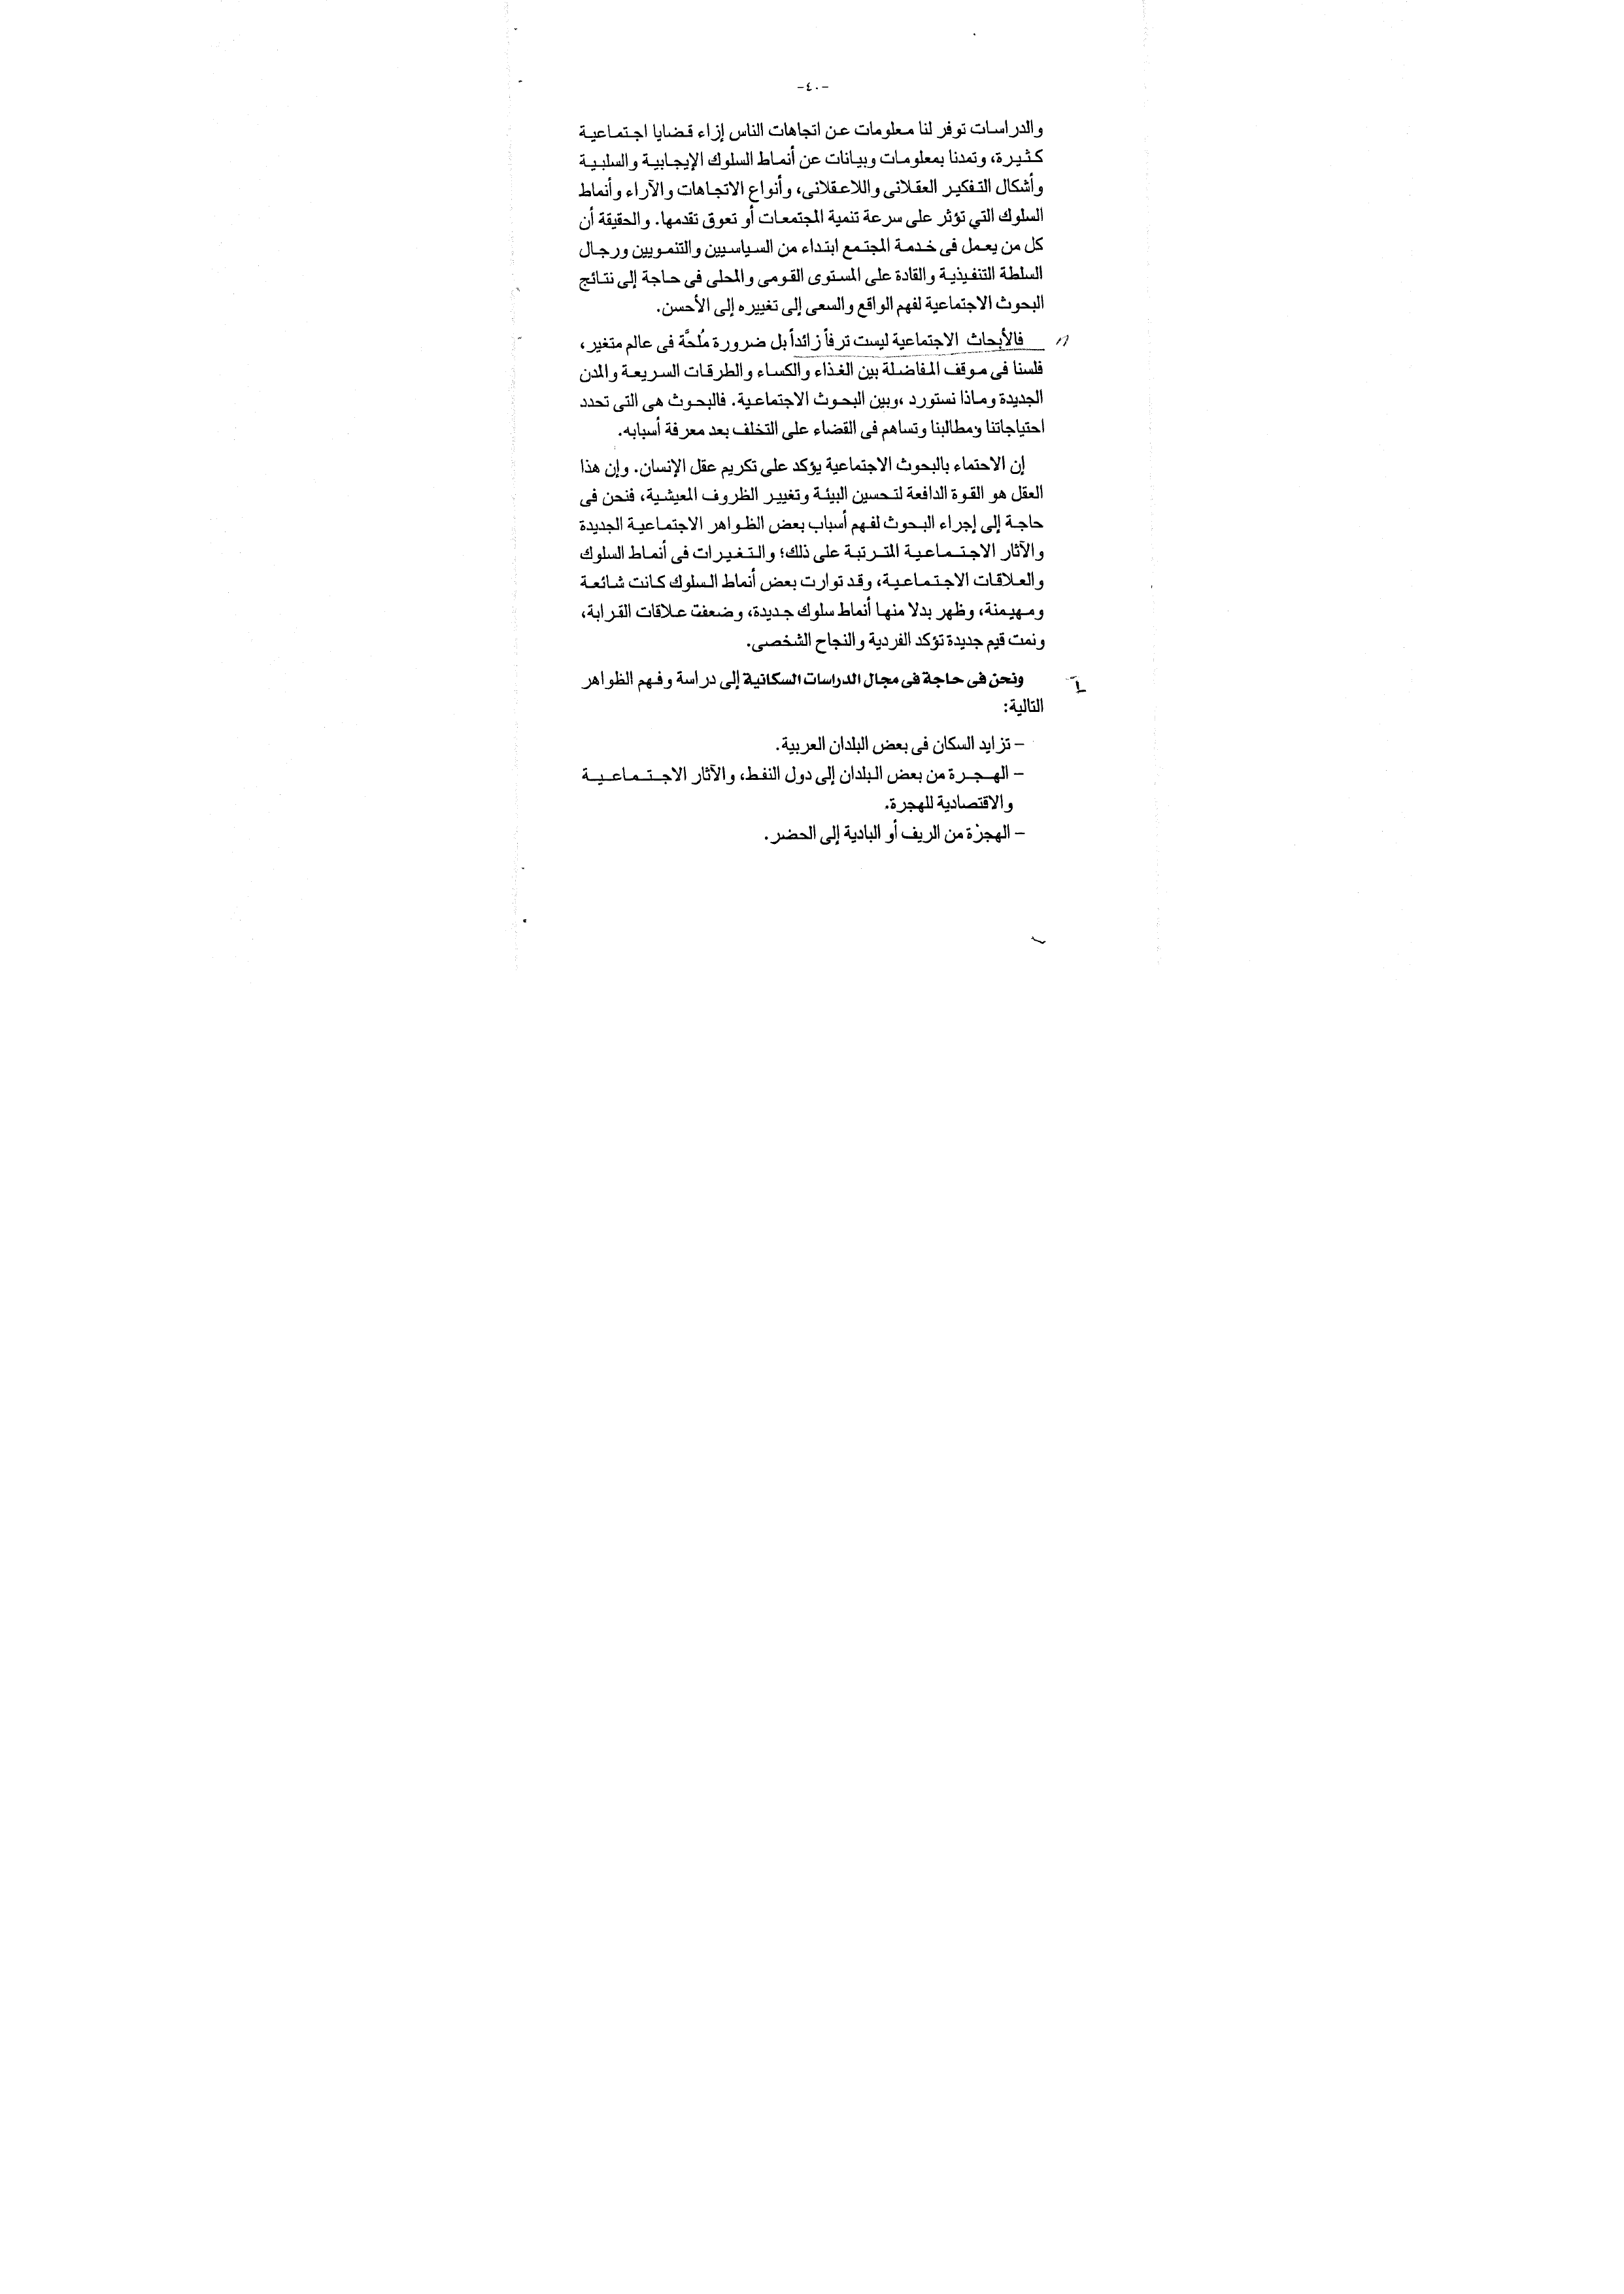 -٤٠-
والدراسات توفر لنا معلومات عن اتجاهات الناس إزاء قضايا اجتماعية
كثيرة، وتمدنا بمعلومات وبيانات عن أنماط السلوك الإيجابية والسلبية
وأشكال التفكير العقلانى واللاعقلانى، وأنواع الاتجاهات والآراء وأنماط
السلوك التي تؤثر على سرعة تنمية المجتمعات أو تعوق تقدمها. والحقيقة أن
كل من يعمل فى خدمة المجتمع ابتداء من السياسيين والتنمويين ورجال
السلطة التنفيذية والقادة على المستوى القومى والمحلى فى حاجة إلى نتائج
البحوث الاجتماعية لفهم الواقع والسعى إلى تغييره إلى الأحسن.
فالأبحاث الاجتماعية ليست ترفاً زائداً بل ضرورة مُلحَّة فى عالم متغير،
فلسنا فى موقف المفاضلة بين الغذاء والكساء والطرقات السريعة والمدن
الجديدة وماذا نستورد ،وبين البحوث الاجتماعية. فالبحوث هى التى تحدد
احتياجاتنا ومطالبنا وتساهم فى القضاء على التخلف بعد معرفة أسبابه.
إن الاحتماء بالبحوث الاجتماعية يؤكد على تكريم عقل الإنسان. وإن هذا
العقل هو القوة الدافعة لتحسين البيئة وتغيير الظروف المعيشية، فنحن فى
حاجة إلى إجراء البحوث لفهم أسباب بعض الظواهر الاجتماعية الجديدة
والآثار الاجتماعية المترتبة على ذلك؛ والتغيرات فى أنماط السلوك
والعلاقات الاجتماعية، وقد توارت بعض أنماط السلوك كانت شائعة
ومهيمنة، وظهر بدلا منها أنماط سلوك جديدة، وضعفت علاقات القرابة،
ونمت قيم جديدة تؤكد الفردية والنجاح الشخصى.
ونحن فى حاجة فى مجال الدراسات السكانية إلى دراسة وفهم الظواهر
التالية:
– تزايد السكان فى بعض البلدان العربية.
– الهجرة من بعض البلدان إلى دول النفط، والآثار الاجتماعية
والاقتصادية للهجرة.
– الهجرة من الريف أو البادية إلى الحضر.